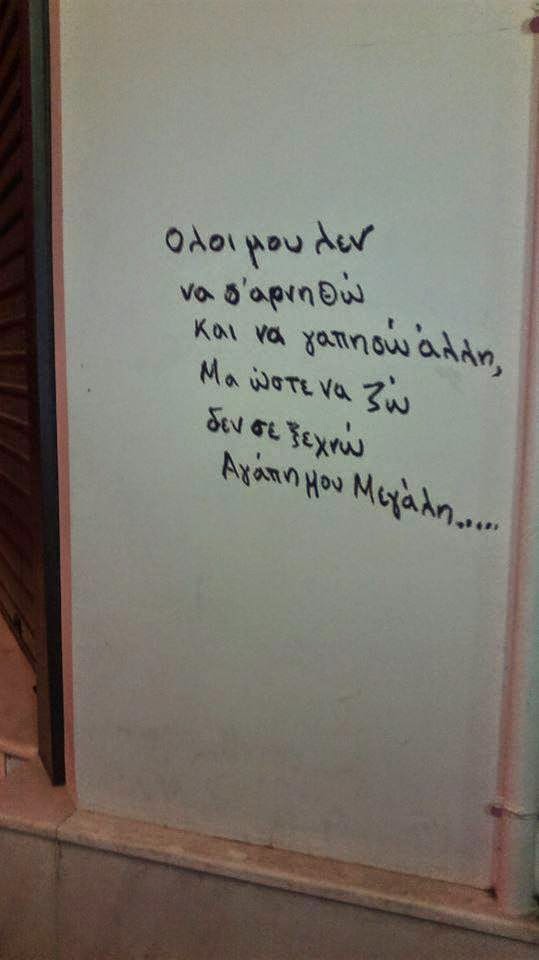 Ολοι μου λεν
να σ'αρνηθώ
και να γαπησώ άλλη,
Μα ώστε να ζώ
δεν σε ξεχνώ
Αγάπη μου Μεγάλη.....